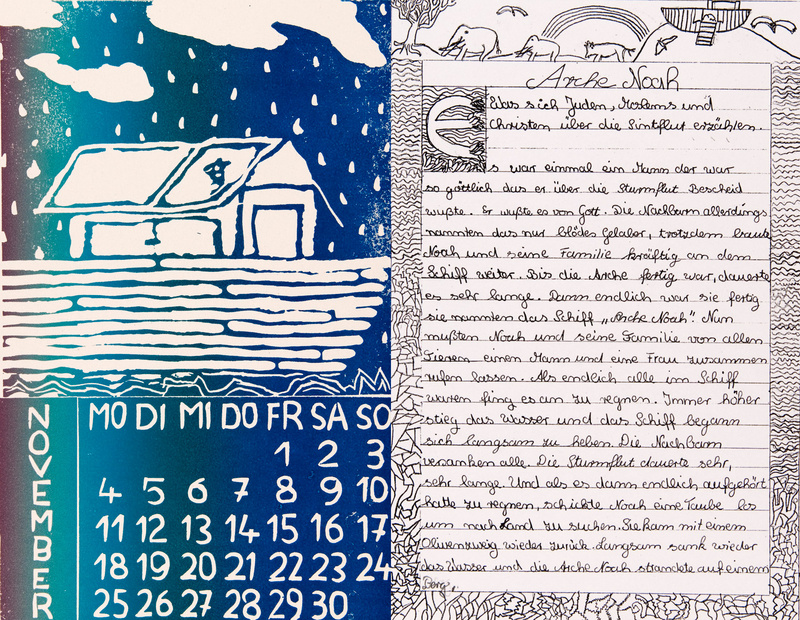 NOVEMBER
MO DI MI DO FR SA SO
1 2 3
4 5 6 7 8 9 10
11 12 13 14 15 16 17
18 19 20 21 22 23 24
25 26 27 28 29 30
Arche Noah
Was sich Juden, Moslems und
Christen über die Sintflut erzählen.
Es war einmal ein Mann der war
so göttlich das er über die Sturmflut Bescheid
wußte. Er wußte es von Gott. Die Nachbarn allerdings
nannten das nur blödes Gelaber, trotzdem baute
Noah und seine Familie kräftig an dem
Schiff weiter. Bis die Arche fertig war, dauerte
es sehr lange. Dann endlich war sie fertig
sie nannten das Schiff „Arche Noah“. Nun
mußten Noah und seine Familie von allen
Tieren einen Mann und eine Frau zusammen
rufen lassen. Als endlich alle im Schiff
waren fing es an zu regnen. Immer höher
stieg das Wasser und das Schiff begann
sich langsam zu heben. Die Nachbarn
versanken alle. Die Sturmflut dauerte sehr,
sehr lange. Und als es dann endlich aufgehört
hatte zu regnen, schickte Noah eine Taube los
um nach Land zu suchen. Sie kam mit einem
Olivenzweig wieder zurück. Langsam sank wieder
das Wasser und die Arche Noah strandete auf einem
Berg.